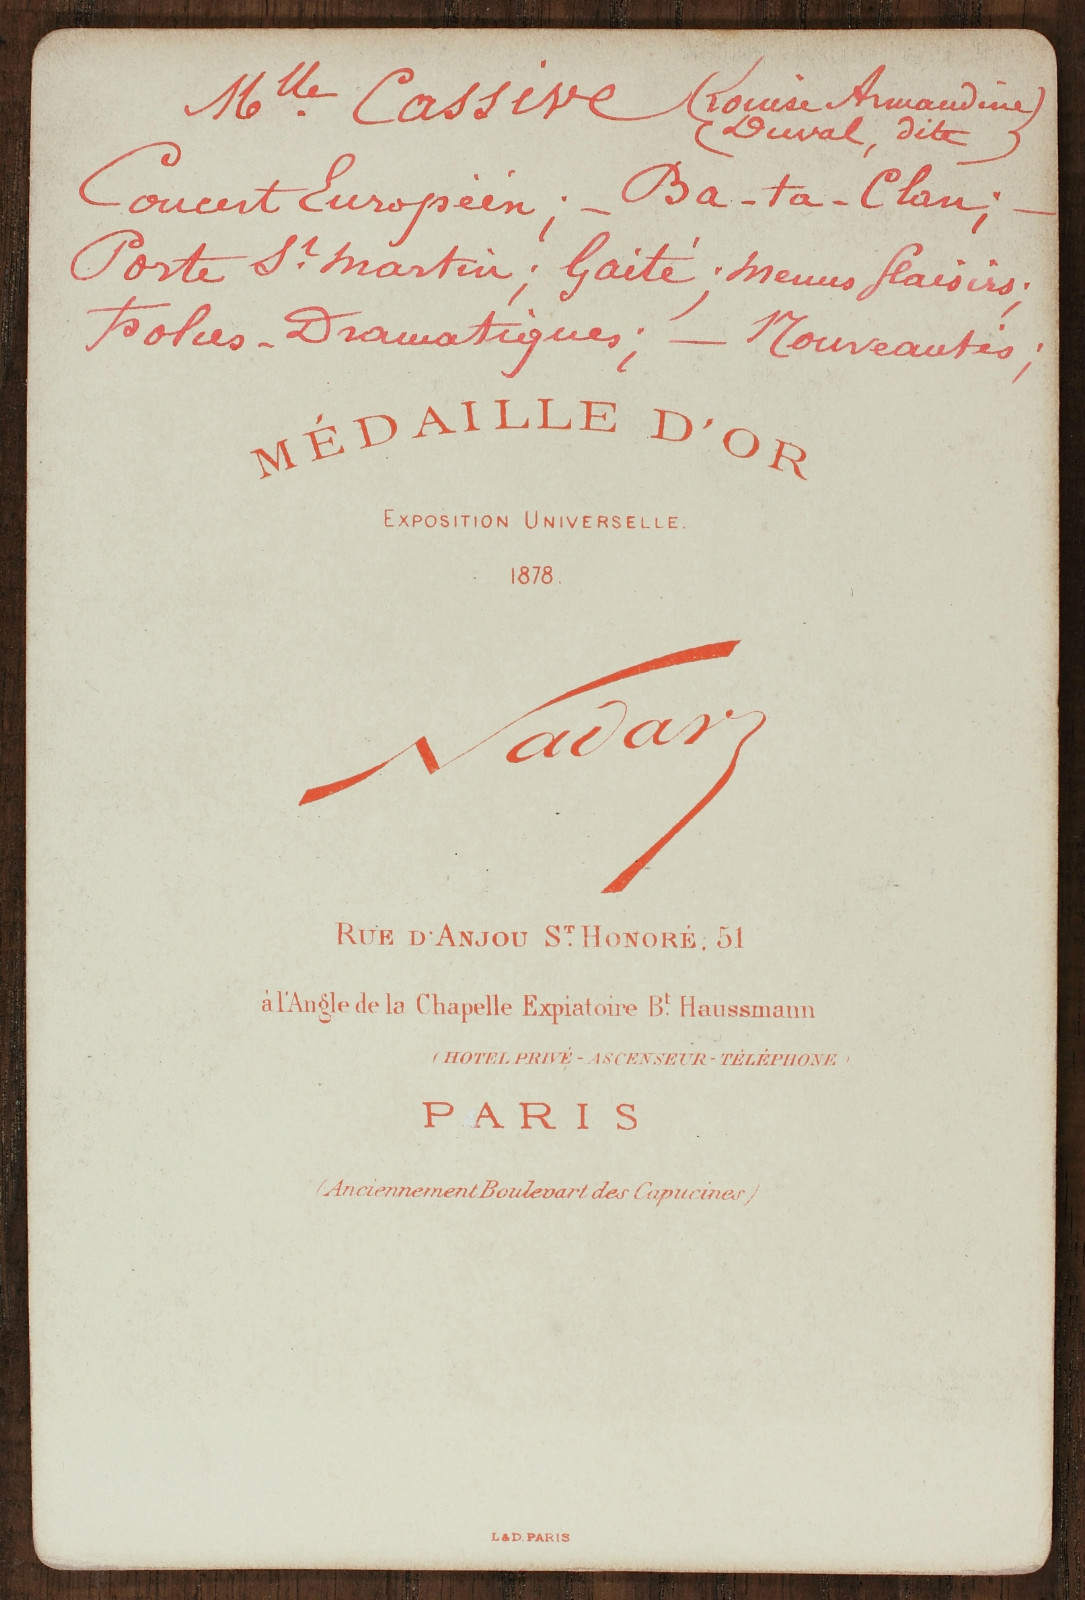 Mlle Cassive (Louise Armandine
Duval, dite)
Concert Européén ; — Ba-ta-Clan ; —
Porte St. Martin ; Gaité ; Menus Plaisirs ;
Folies-Dramatiques ; — Nouveautés ;
MÉDAILLE D'OR
EXPOSITION UNIVERSELLE.
1878.
Nadar
RUE D'ANJOU ST. HONORÉ, 51
à l'Angle de la Chapelle Expiatoire Bt. Haussmann
(HOTEL PRIVÉ - ASCENSEUR - TÉLÉPHONE)
PARIS
(Anciennement Boulevart des Capucines)
L&D. PARIS